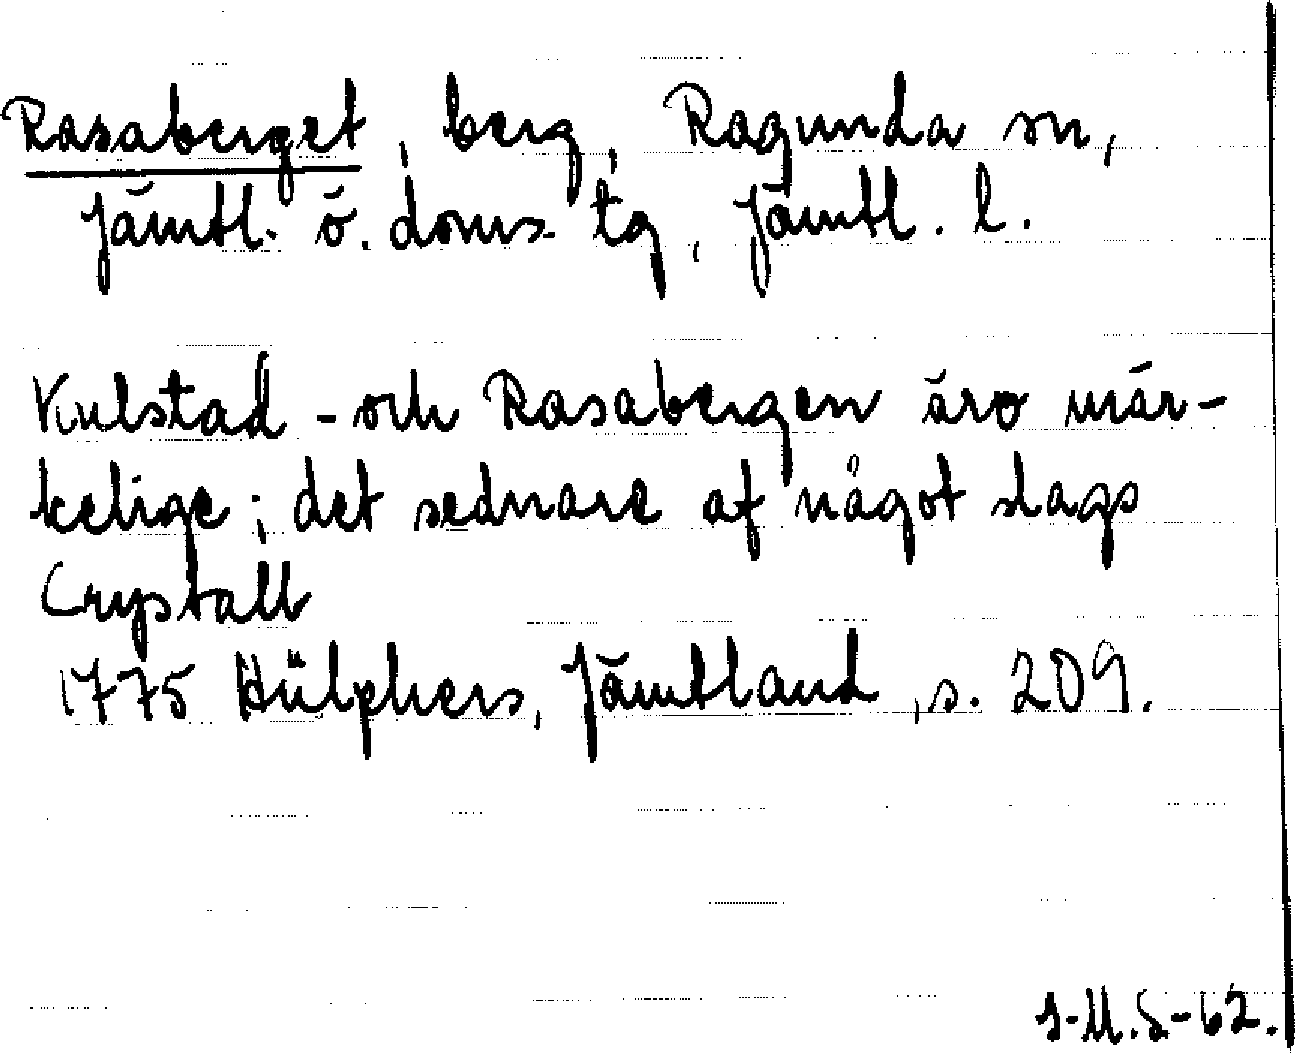 Rasaberget, berg, Ragunda sn,
Jämtl. ö. doms tg, Jämtl. l.
Kulstad - och Rasabergen äro mär-
kelige; det sednare af något slags
Crystall
1775 Hülphers, Jämtland, s. 209.
J-M.S-62.